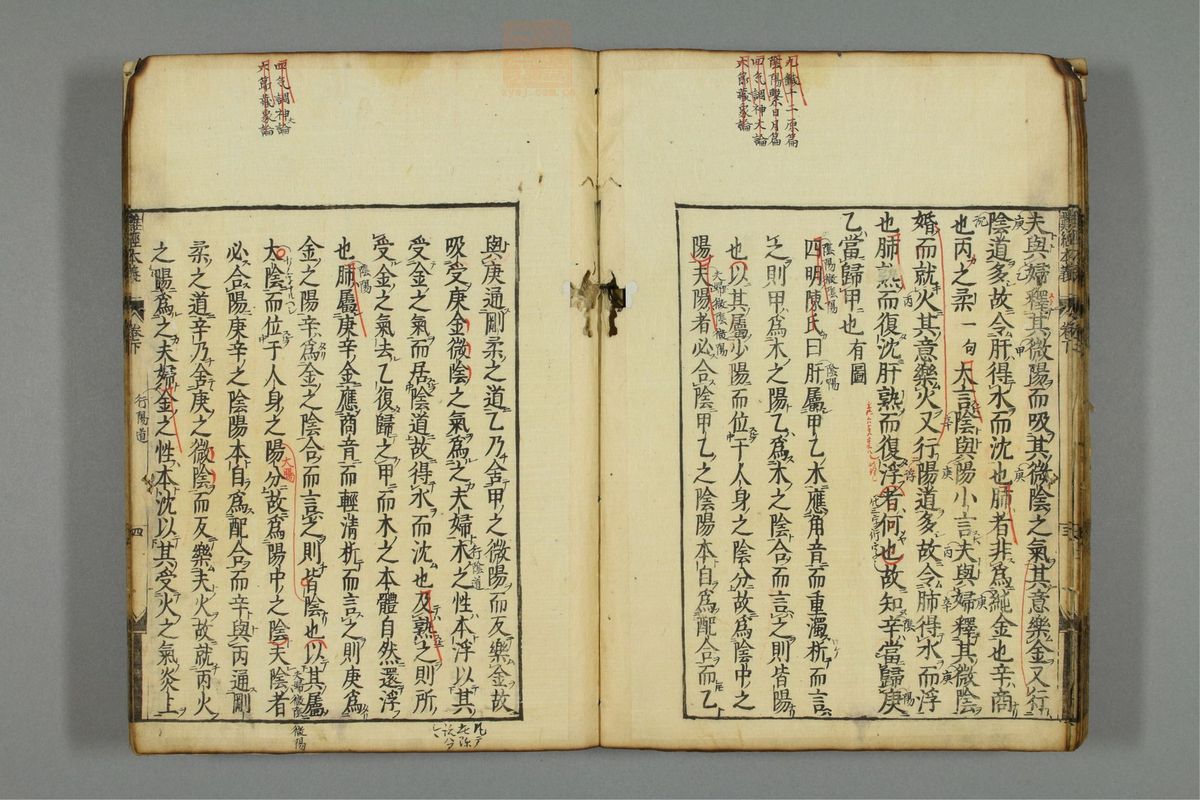 九鍼十二原篇
陰陽繫日月篇
四氣調神大論
六節藏象論
夫與婦釋其微陽而吸其微陰之氣其意樂金又行
陰道多故令肝得水而沈也肺者非為純金也辛商
也丙之柔一句大言陰與陽小言夫與婦釋其微陰
婚而就火其意樂火又行陽道多故令肺得水而浮
也肺熟而復沈肝熟而復浮者何也故知辛當歸庚
乙當歸甲也有圖
四明陳氏曰肝屬甲乙木應角音而重濁析而言
之則甲為木之陽乙為木之陰合而言之則皆陽
也以其屬少陽而位于人身之陰分故為陰中之
陽夫陽者必合陰甲乙之陰陽本自為配合而乙
四氣調神論
六節藏象論
與庚通剛柔之道乙乃舍甲之微陽而反樂金故
吸受庚金微陰之氣為之夫婦木之性本浮以其
受金之氣而居陰道故得水而沈也及熟之則所
受金之氣去乙復歸之甲而木之本體自然還浮
也肺屬庚辛金應商音而輕清析而言之則庚為
金之陽辛為金之陰合而言之則皆陰也以其屬
太陰而位于人身之陽分故為陽中之陰夫陰者
必合陽庚辛之陰陽本自為配合而辛與丙通剛
柔之道辛乃舍庚之微陰而反樂夫火故就丙火
之陽為之夫婦金之性本沈以其受火之氣炎上
行陰道
行陽道
卷下
四